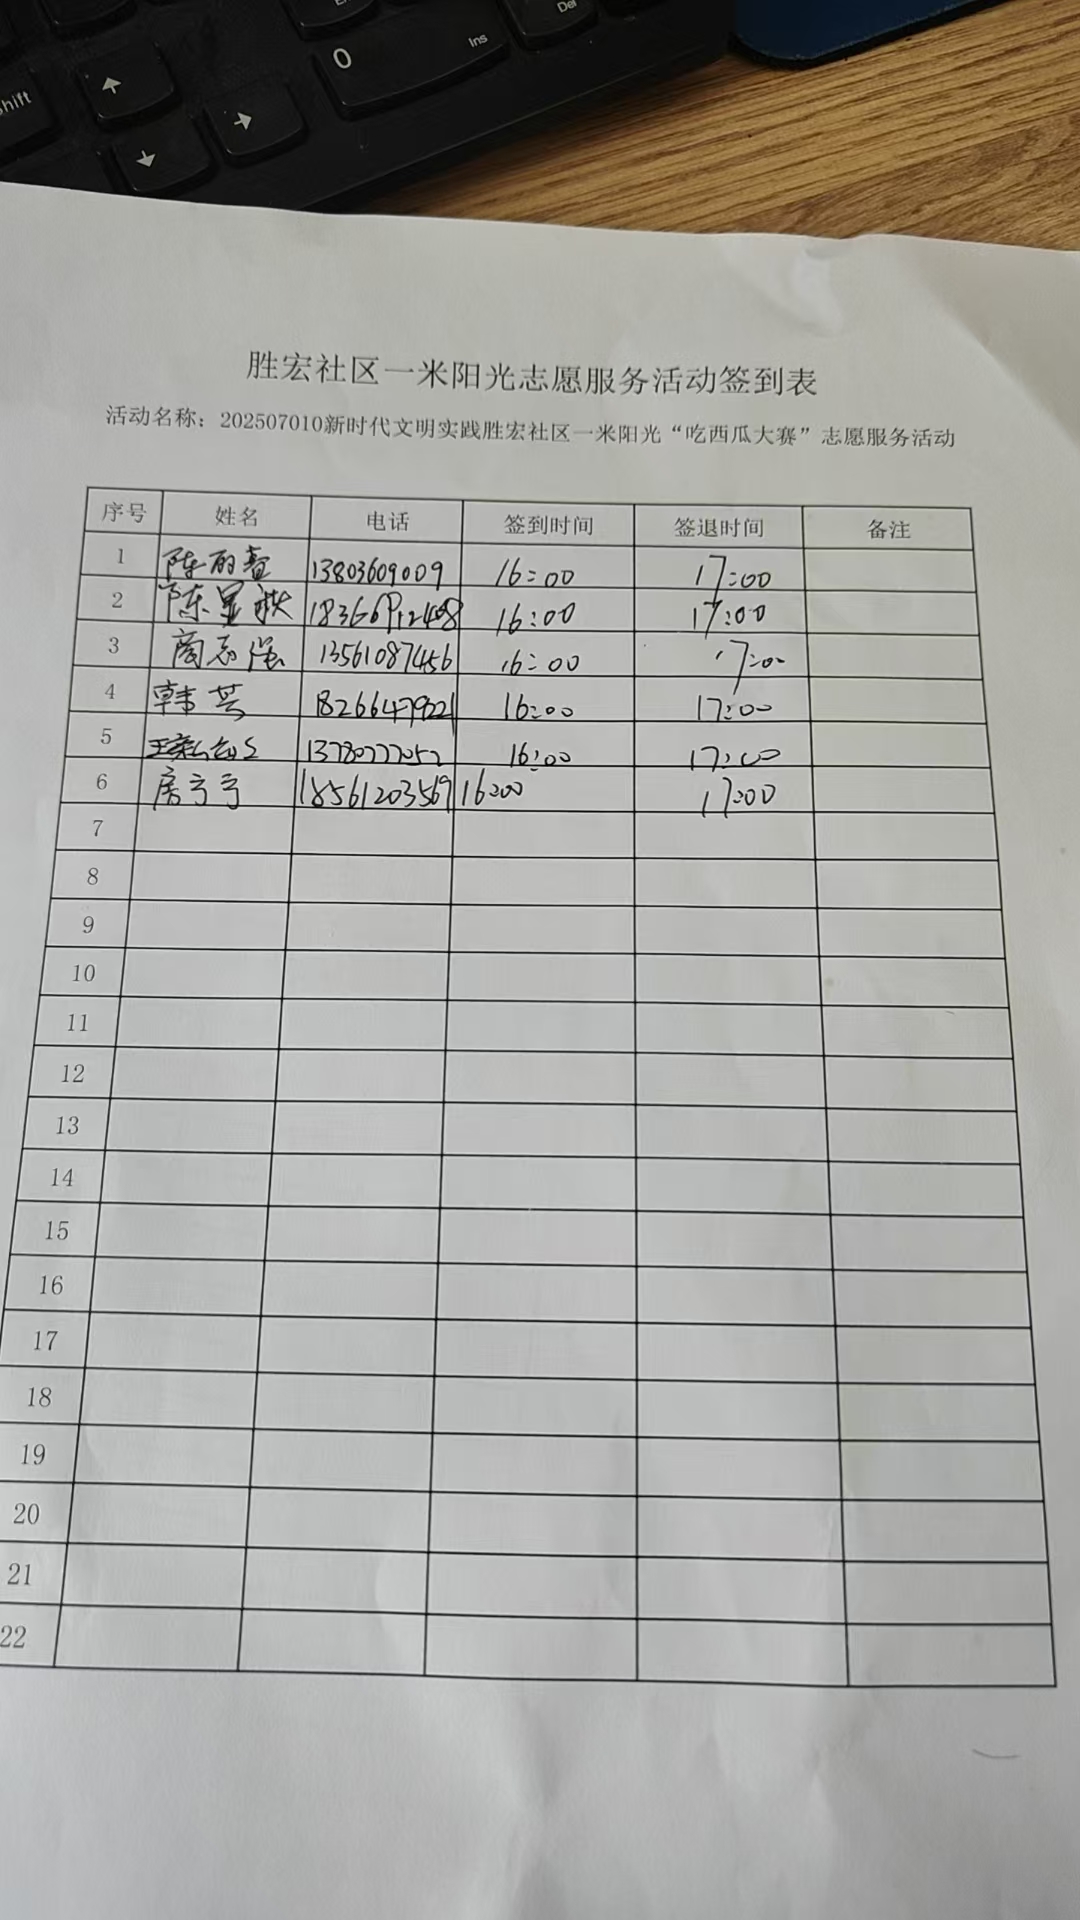 Shift
↑
↓
→
0
Ins
Del
胜宏社区一米阳光志愿服务活动签到表
活动名称：202507010新时代文明实践胜宏社区一米阳光“吃西瓜大赛”志愿服务活动
序号 姓名 电话 签到时间 签退时间 备注
1 陈丽 13803609009 16:00 17:00
2 陈显 16:00 17:00
3 商志强 13561087456 16:00 17:00
4 韩芸 16:00 17:00
5 13780777052 16:00 17:00
6 房亏亏 18561203569 16:00 17:00
7
8
9
10
11
12
13
14
15
16
17
18
19
20
21
22